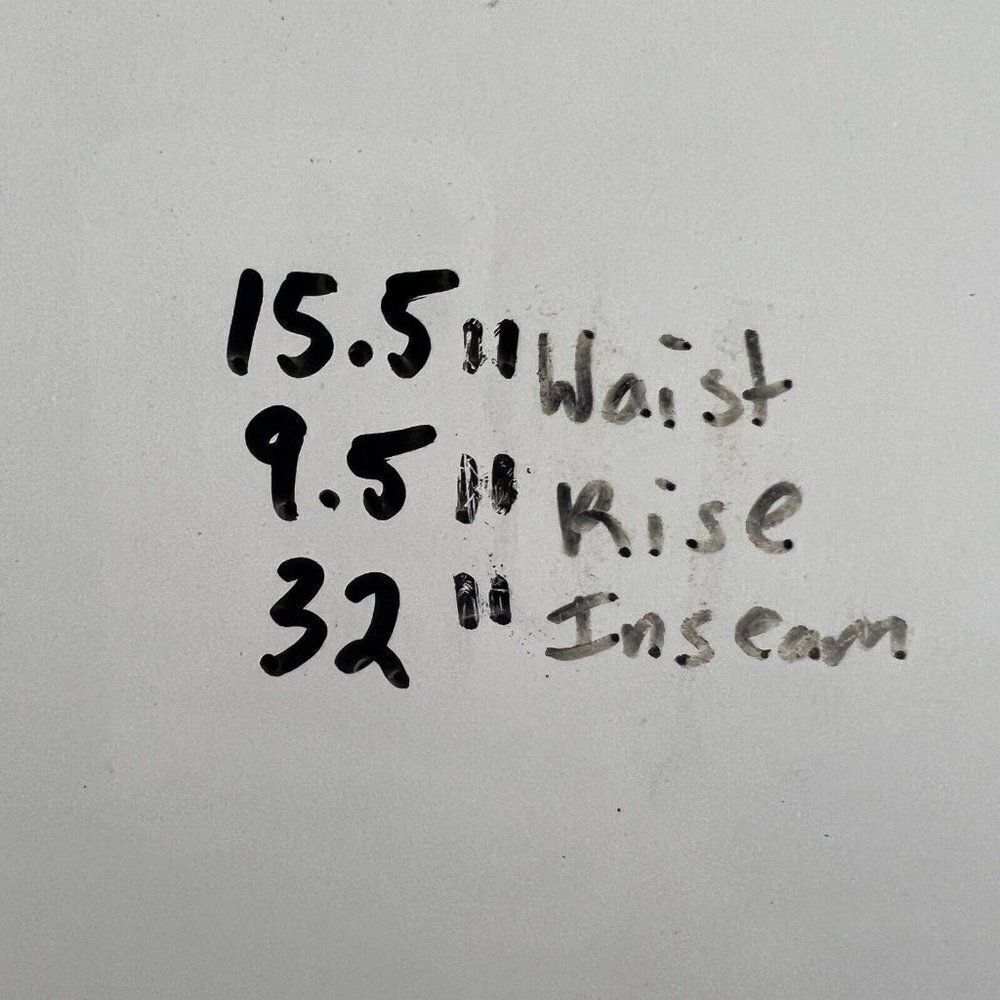 15.5" Waist
9.5" Rise
32" Inseam